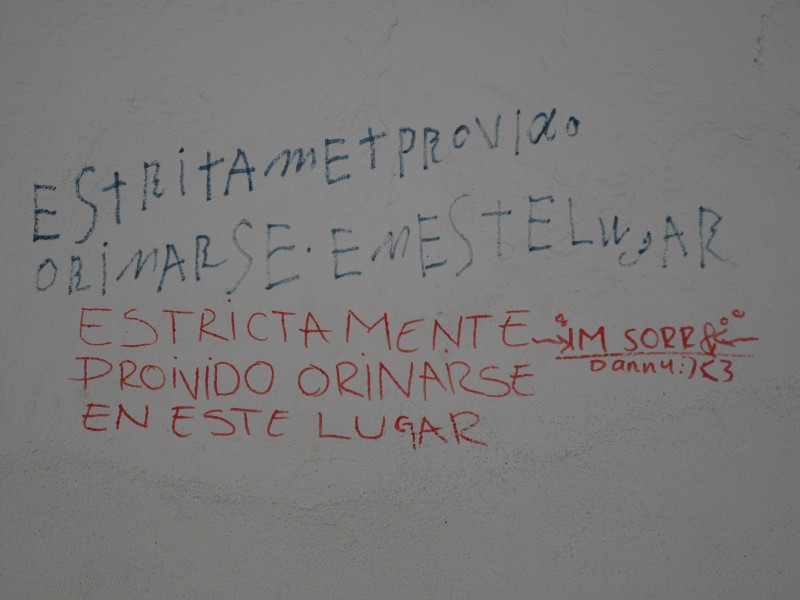 ESTRITAMETPROVIDO
ORINARSE. EN ESTE LUGAR
ESTRICTAMENTE
PROIVIDO ORINARSE
EN ESTE LUGAR
IM SORRY
Danny:)<3